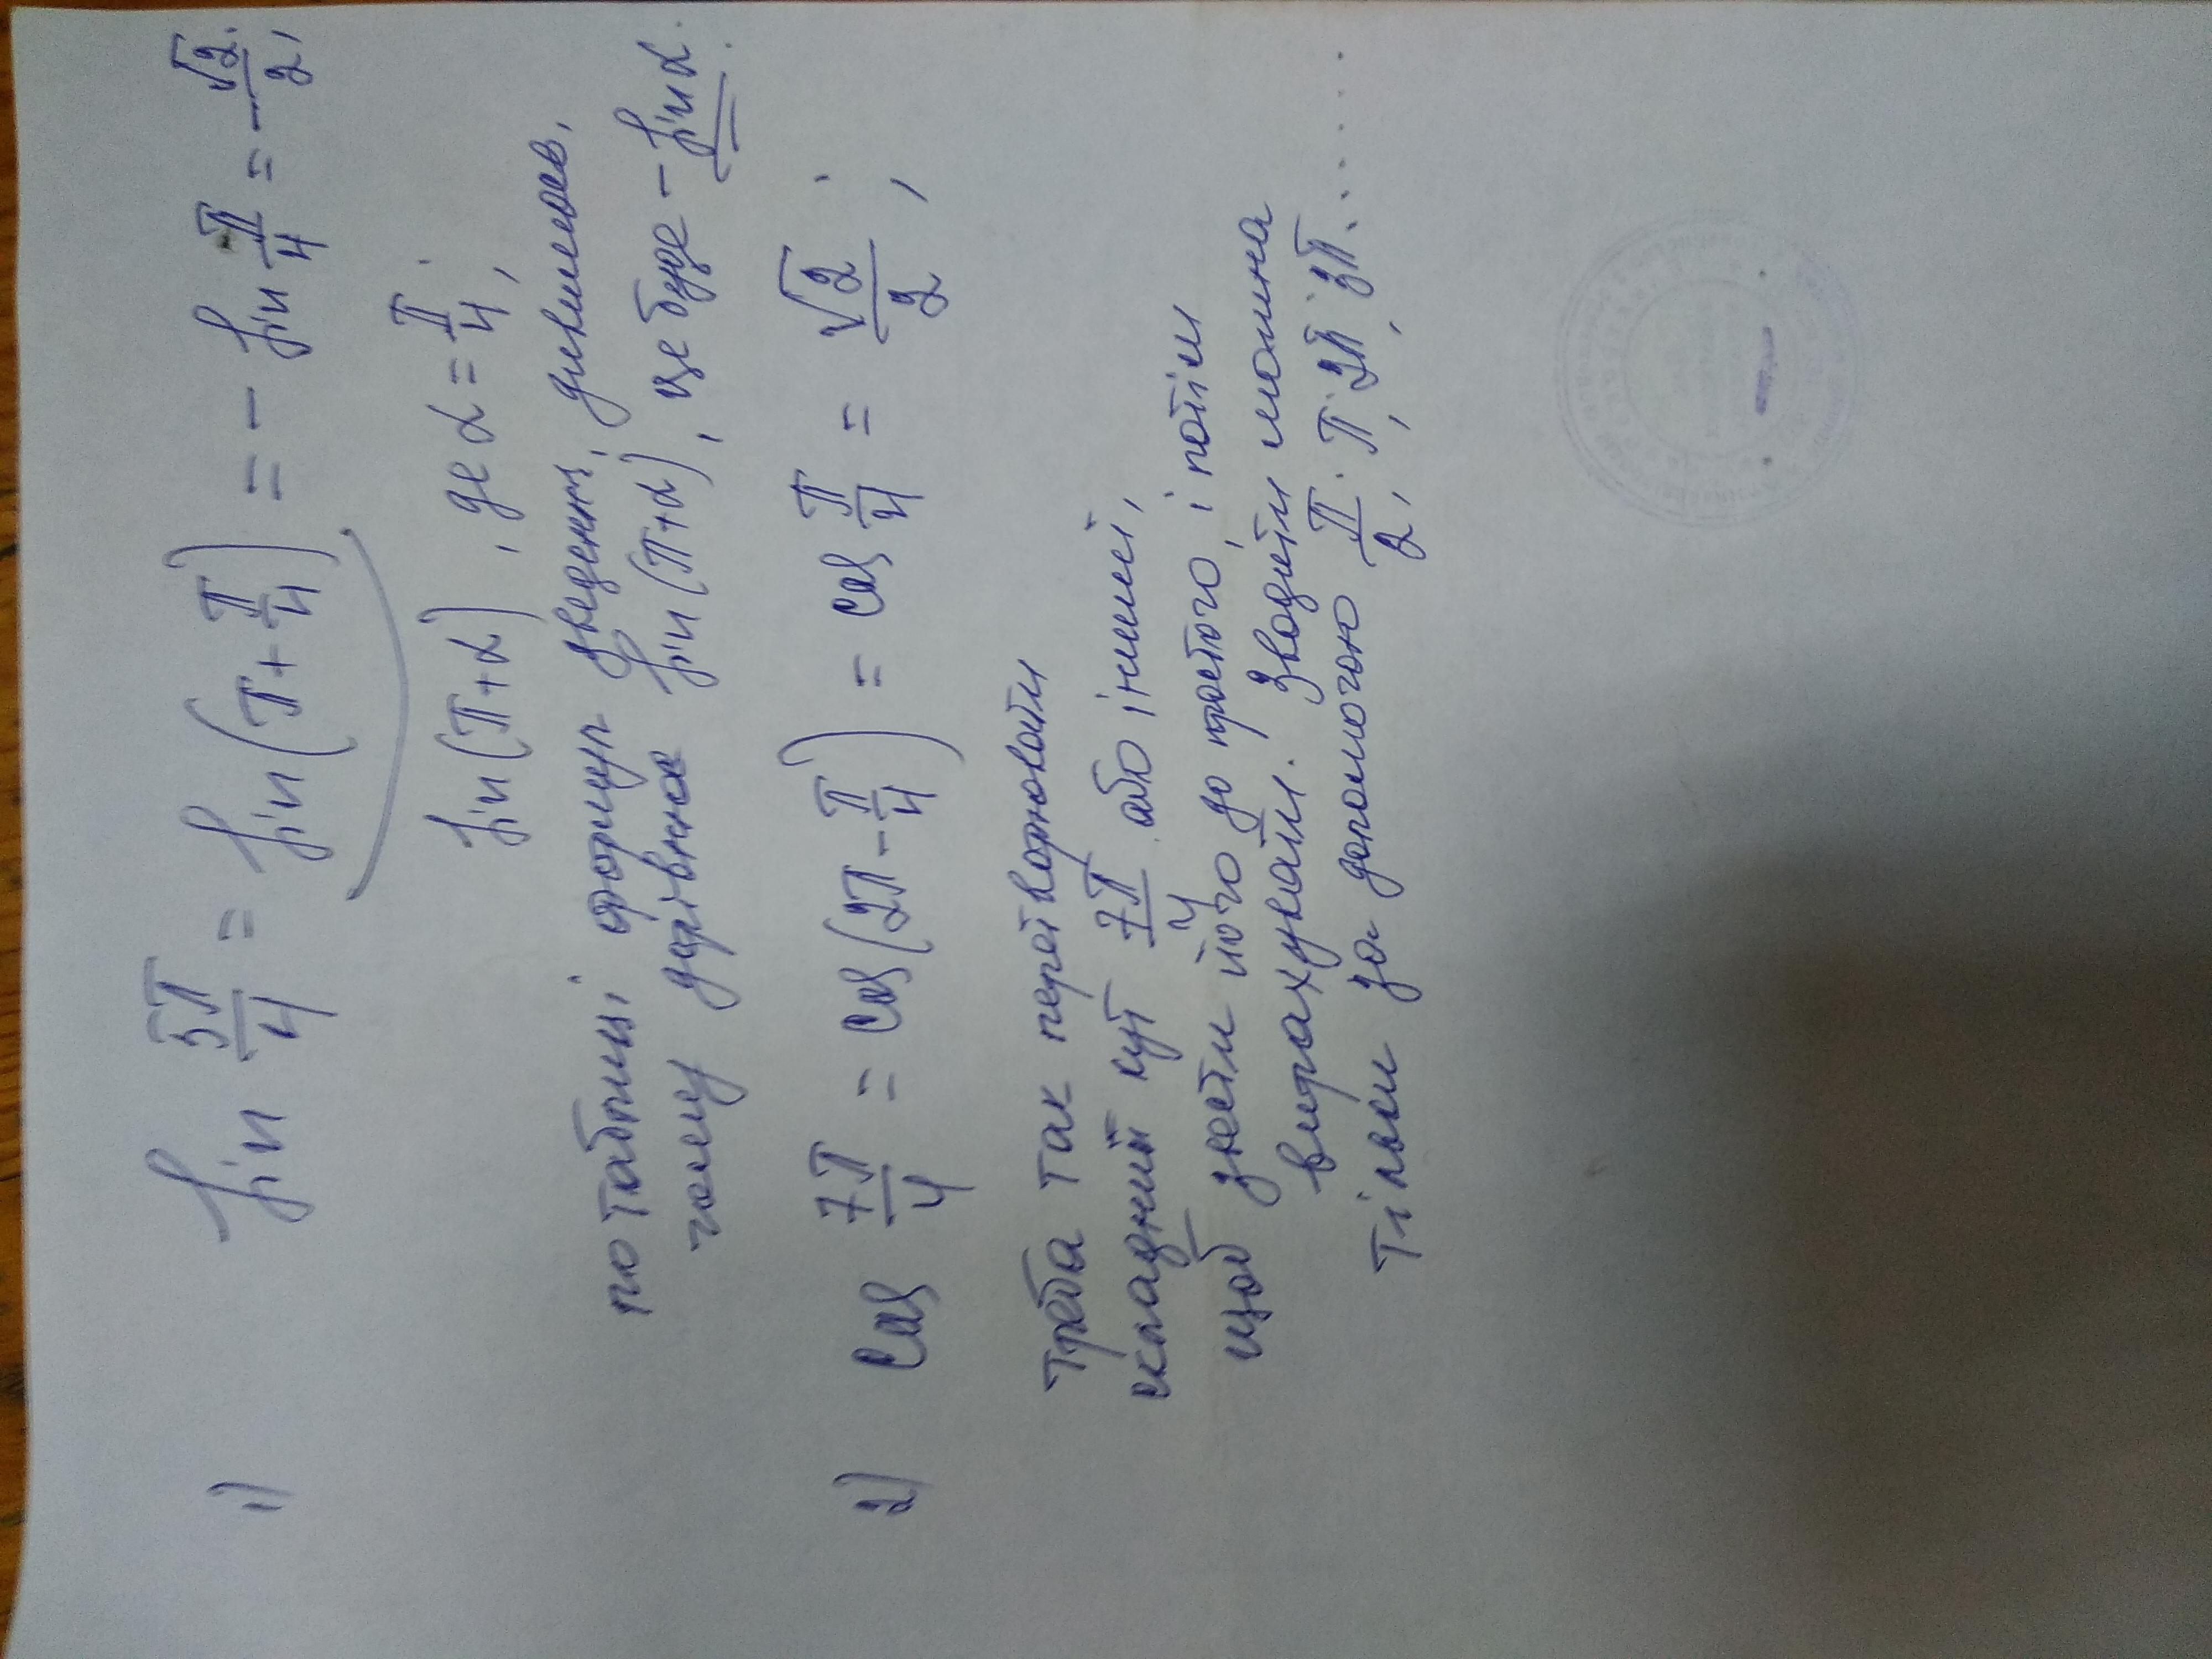 1) sin 5π/4 = sin(π + π/4) = - sin π/4 = - √2/2;
sin(π+α), де α = π/4;
по таблиці формул зведення, дивимось,
чому дорівнює sin(π+α), це буде - sin α.
2) cos 7π/4 = cos(2π - π/4) = cos π/4 = √2/2;
Треба так перетворювати
складний кут 7π/4 або інший,
щоб звести його до простого, і потім
вирахувати. Зводити можна
тільки за допомогою π/2; π; 2π; 3π......